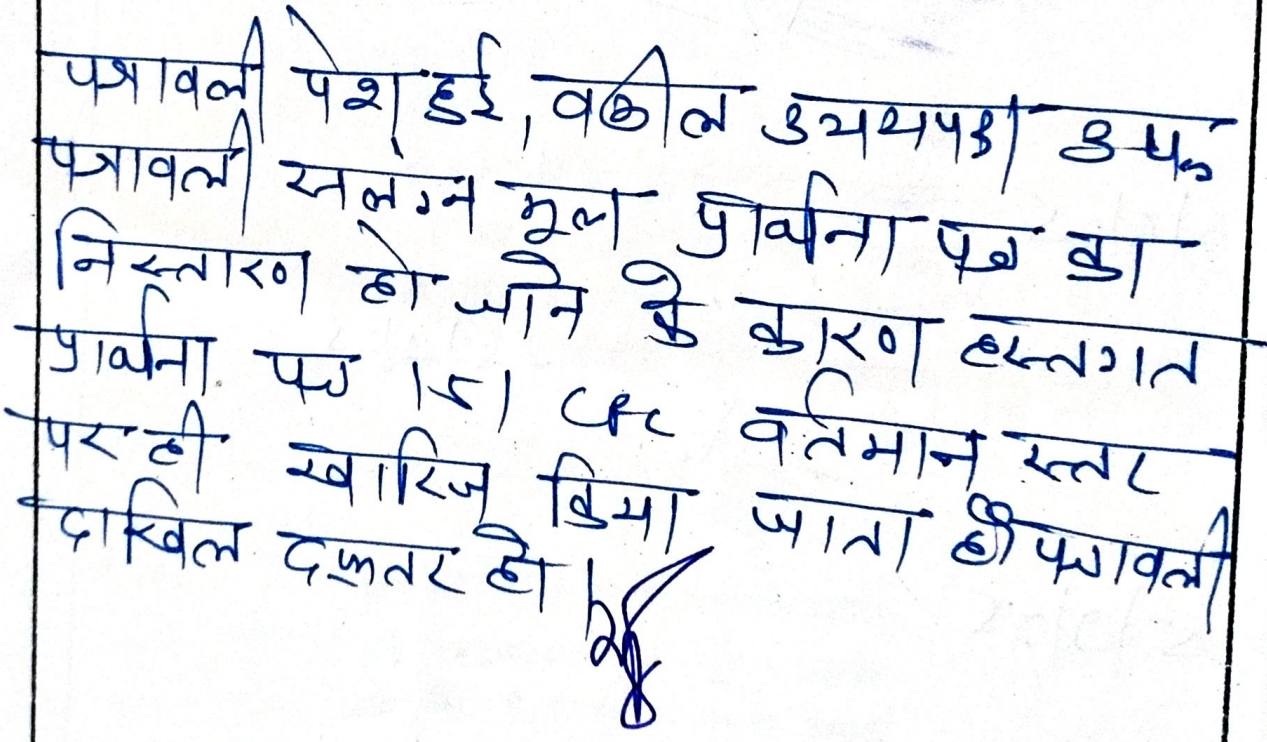 पत्रावली पेश हुई, वकील उभयपक्ष उप॰
पत्रावली सलंग्न मूल प्रार्थना पत्र का
निस्तारण हो जाने के कारण हस्तगत
प्रार्थना पत्र 151 CPC वर्तमान स्तर
पर ही खारिज किया जाता है। पत्रावली
दाखिल दफ्तर हो।